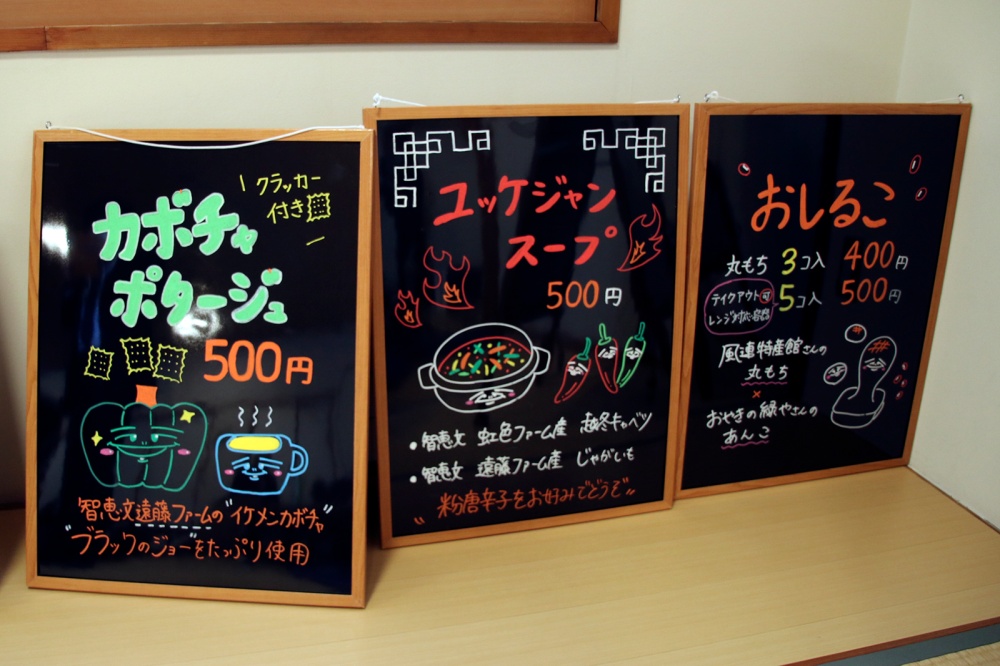 クラッカー
付き
カボチャ
ポタージュ
500円
智恵文遠藤ファームの"イケメンカボチャ"
"ブラックのジョー"をたっぷり使用
ユッケジャン
スープ
500円
・智恵文 虹色ファーム産 越冬キャベツ
・智恵文 遠藤ファーム産 じゃがいも
"粉唐辛子をお好みでどうぞ"
おしるこ
丸もち 3コ入 400円
5コ入 500円
テイクアウト可
レンジ対応容器
風連特産館さんの
丸もち
×
おやきの緑やさんの
あんこ